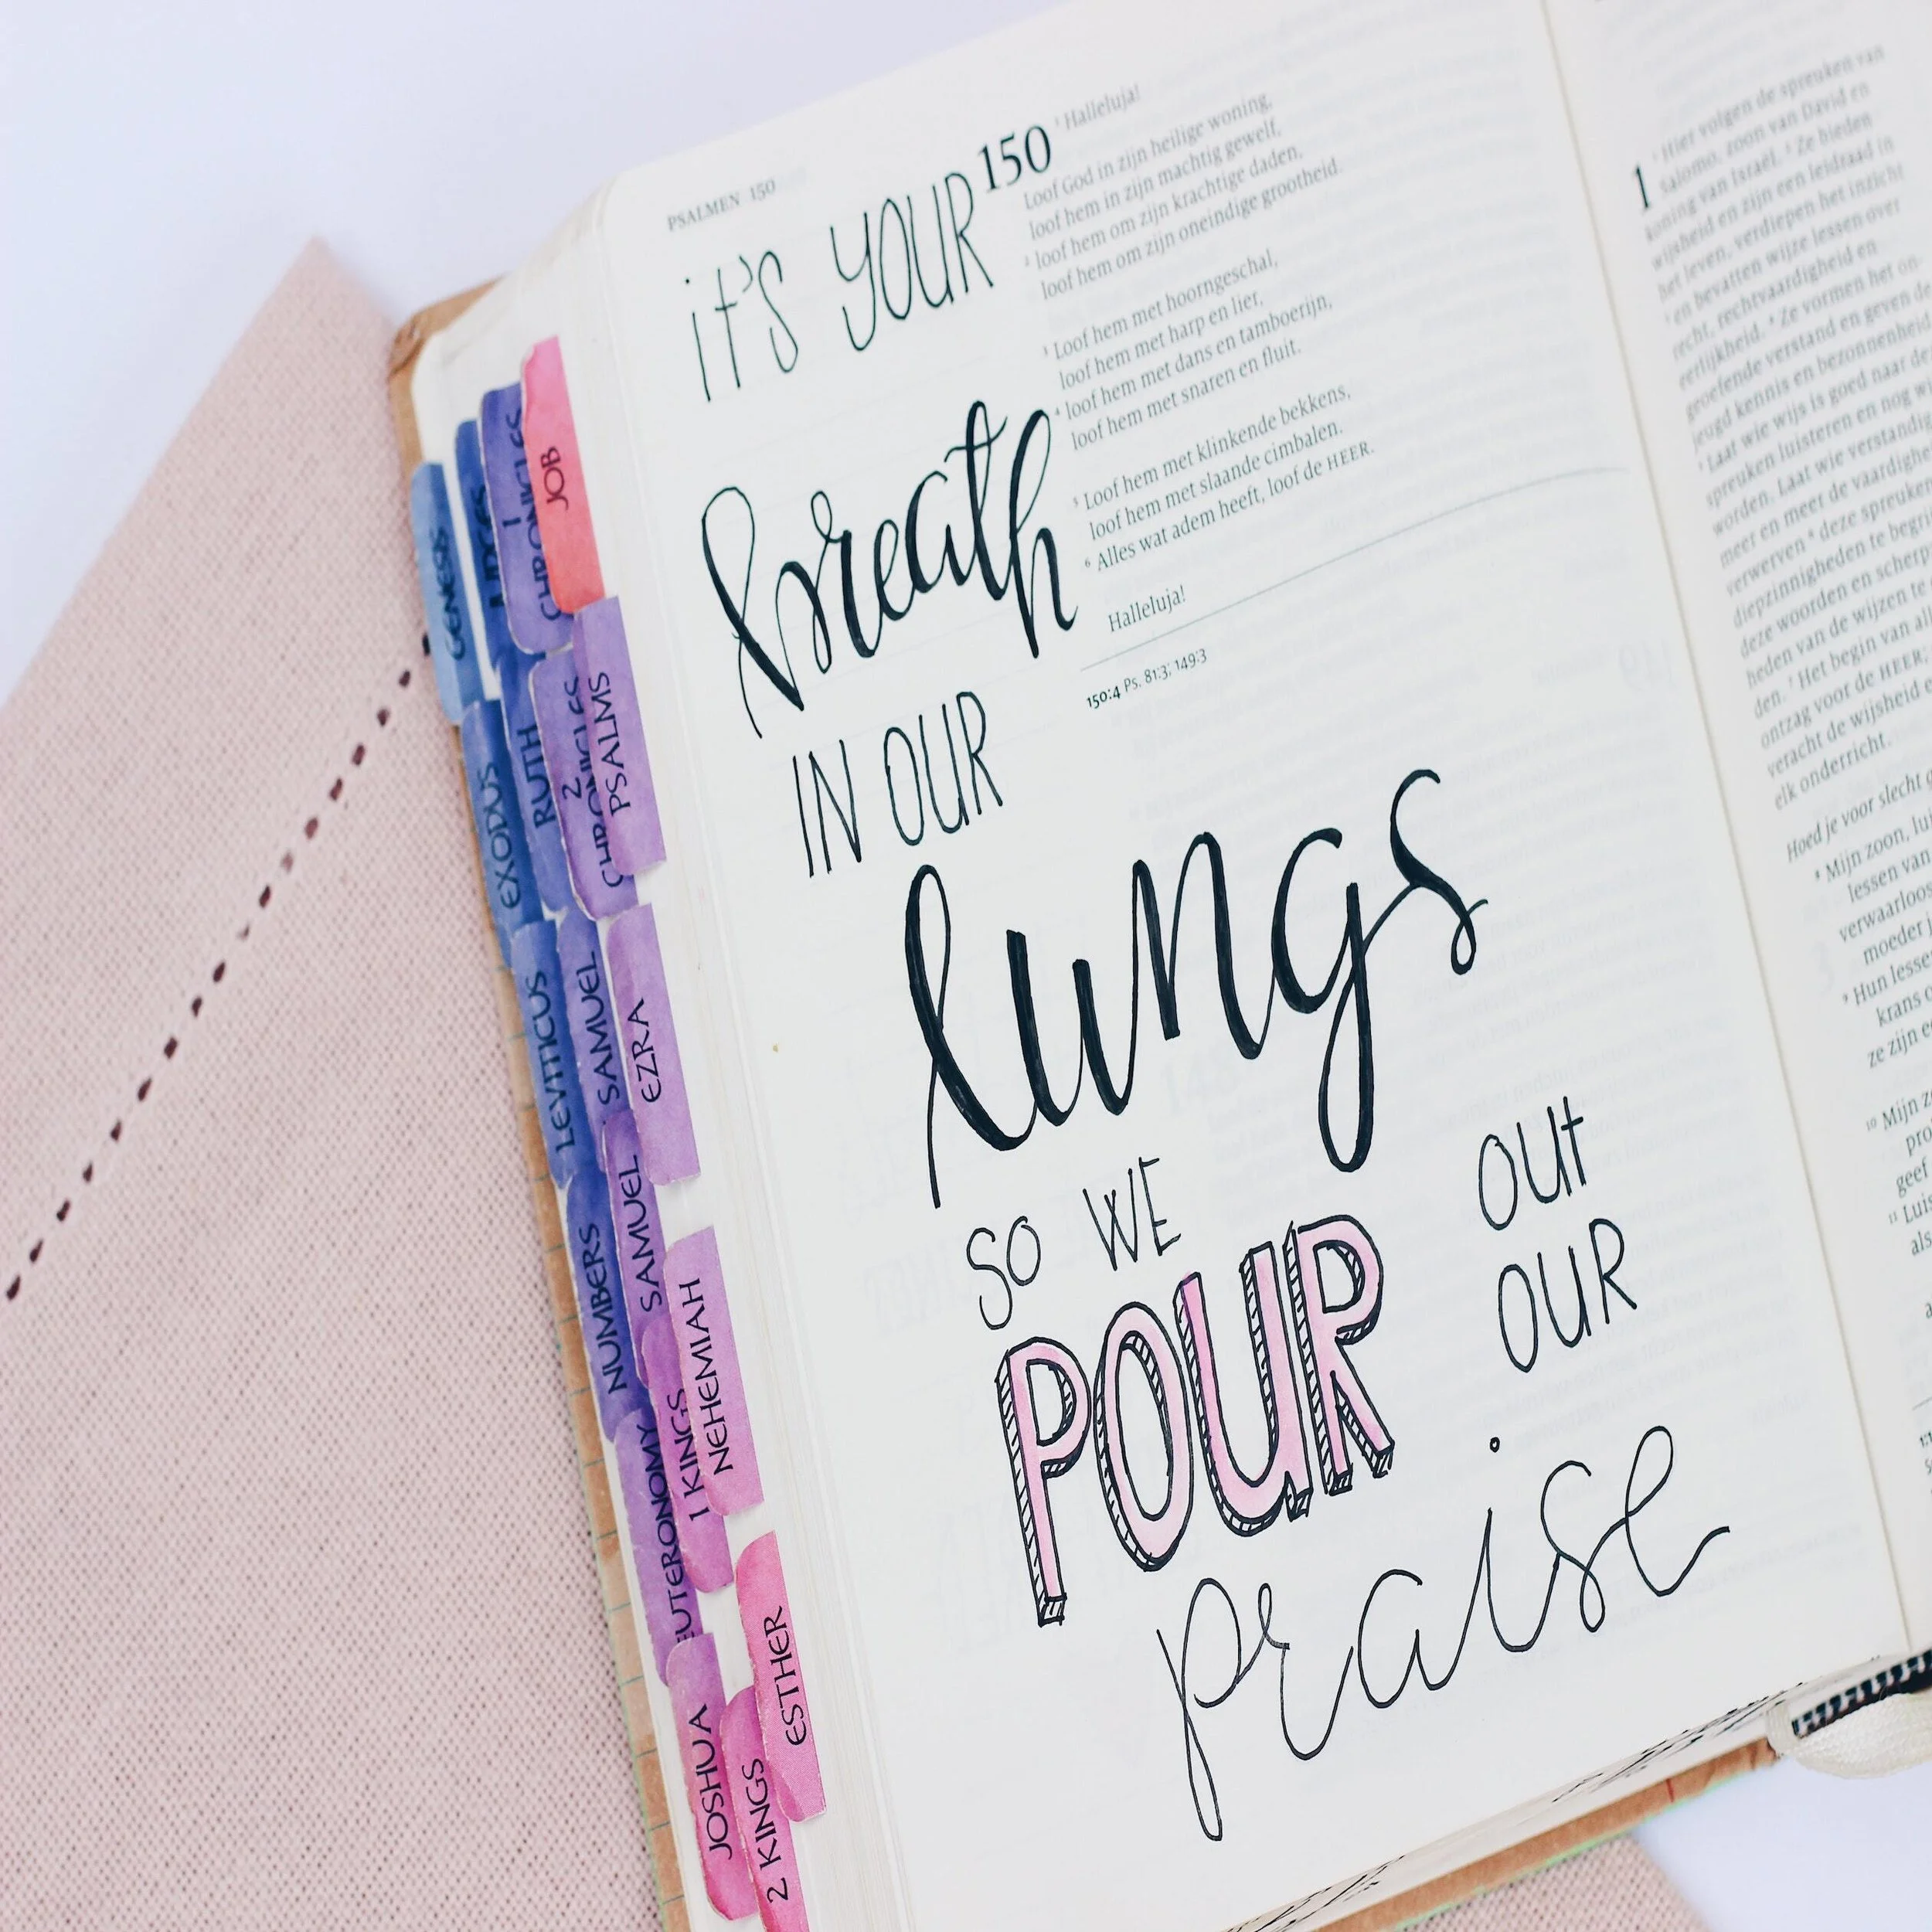 GENESIS
EXODUS
LEVITICUS
NUMBERS
EUTERONOMY
JOSHUA
RUTH
SAMUEL
SAMUEL
1 KINGS
2 KINGS
1 CHRONICLES
2 CHRONICLES
EZRA
NEHEMIAH
ESTHER
JOB
PSALMS
PSALMEN 150
it's YOUR
breath
IN OUR
lungs
SO WE
POUR
OUt
OUR
praise
150
1 Halleluja!
Loof God in zijn heilige woning,
loof hem in zijn machtig gewelf,
2 loof hem om zijn krachtige daden,
loof hem om zijn oneindige grootheid.
3 Loof hem met hoorngeschal,
loof hem met harp en lier,
4 loof hem met dans en tamboerijn,
loof hem met snaren en fluit.
5 Loof hem met klinkende bekkens,
loof hem met slaande cimbalen.
6 Alles wat adem heeft, loof de HEER.
Halleluja!
150:4 Ps. 81:3; 149:3
1
1 Hier volgen de spreuken van
Salomo, zoon van David en
koning van Israël. 2 Ze bieden
wijsheid en zijn een leidraad in
het leven, verdiepen het inzicht
3 en bevatten wijze lessen over
recht, rechtvaardigheid en
eerlijkheid. 4 Ze vormen het on-
geoefende verstand en geven de
jeugd kennis en bezonnenheid
5 Laat wie wijs is goed naar de
spreuken luisteren en nog wi
worden. Laat wie verstandig
meer en meer de vaardighe
verwerven 6 deze spreuken
diepzinnigheden te begri
deze woorden en scherp
heden van de wijzen te
den. 7 Het begin van all
ontzag voor de HEER;
veracht de wijsheid e
elk onderricht.
Hoed je voor slecht g
8 Mijn zoon, lui
lessen van
verwaarloos
moeder j
9 Hun lesse
krans o
ze zijn e
10 Mijn z
pro
geef
11 Luis
als